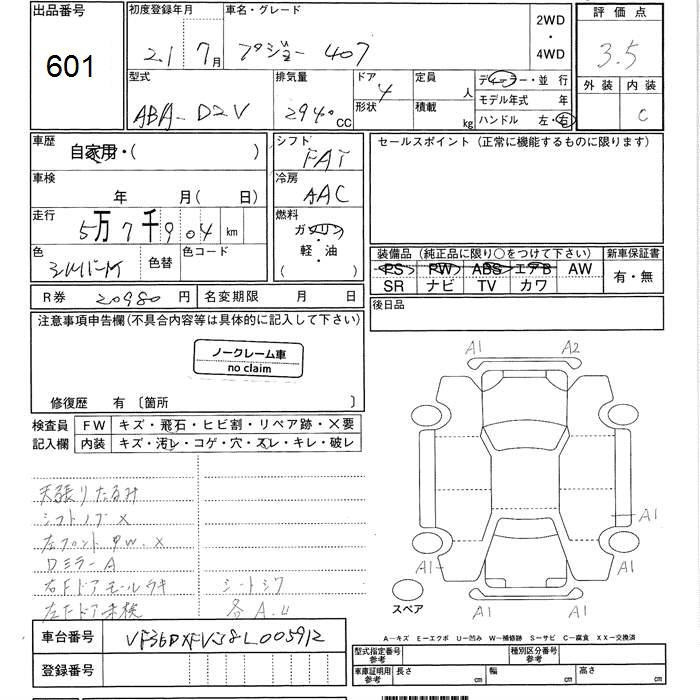 出品番号
601
初度登録年月
21 7月
車名・グレード
プジョー 407
2WD
・
4WD
評価点
3.5
外装 内装
C
型式
ABA-D2V
排気量
2940 CC
ドア
4
形状
定員
人
積載
kg
ディーラー・並行
モデル年式 年
ハンドル 左・右
車歴
自家用・( )
車検
年 月( 日)
走行
5万7千904 km
色
シルバーM
色替
色コード
シフト
FAT
冷房
AAC
燃料
ガソリン
・
軽・油
( )
セールスポイント(正常に機能するものに限ります)
装備品(純正品に限り○をつけて下さい)
PS PW ABS エアB AW
SR ナビ TV カワ
新車保証書
有・無
R券 20980 円
名変期限 月 日
後日品
注意事項申告欄(不具合内容等は具体的に記入して下さい)
ノークレーム車
no claim
修復歴 有 〔箇所 〕
検査員
記入欄
FW キズ・飛石・ヒビ割・リペア跡・×要
内装 キズ・汚レ・コゲ・穴・スレ・キレ・破レ
天張りたるみ
シフトノブ×
左フロントPW.×
DミラーA
右Fドアモールウキ
シートシワ
各A.U
A1 A2
A1
A1 A1
A1 A1
スペア
A-キズ E-エクボ U-凹み W-補修跡 S-サビ C-腐食 XX-交換済
車台番号
VF36DXFVJ8L005912
登録番号
型式指定番号
参考
種別区分番号
参考
車庫証明用
参考
長さ cm
幅 cm
高さ cm